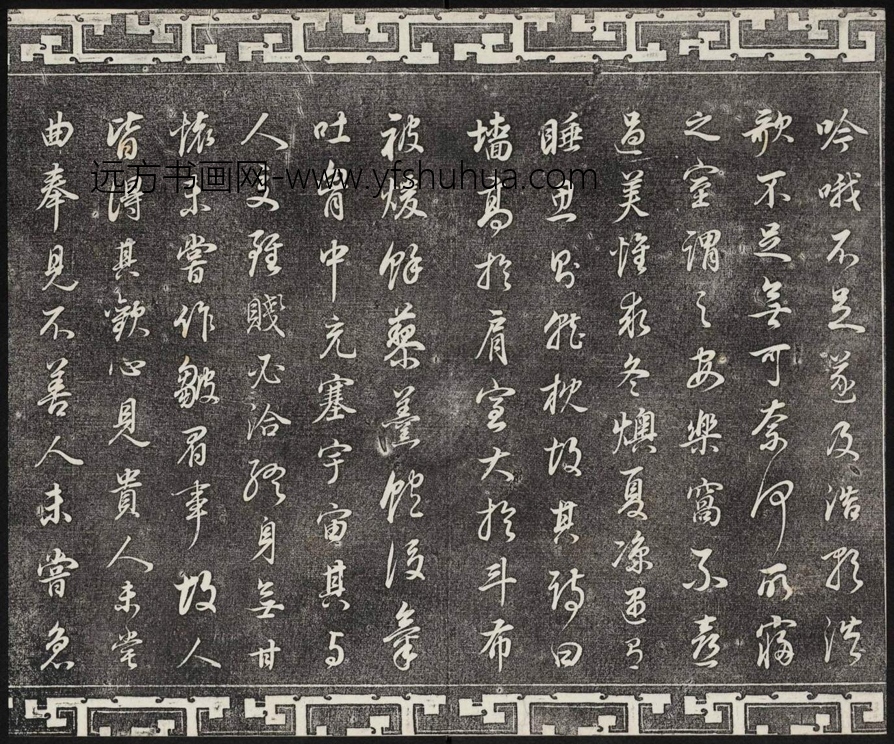 吟哦不足遂及浩歌浩
歌不足無可奈何所寢
之室謂之安樂窩不意
過美惟求冬燠夏涼遇有
睡思則就枕故其詩曰
墻高於肩室大於斗布
被煖餘藜羹飽後氣
吐胷中充塞宇宙其與
人交雖賤必洽終身無甘
懷未嘗作皺眉事故人
皆得其歡心見貴人未嘗
曲奉見不善人未嘗急
远方书画网-www.yfshuhua.com